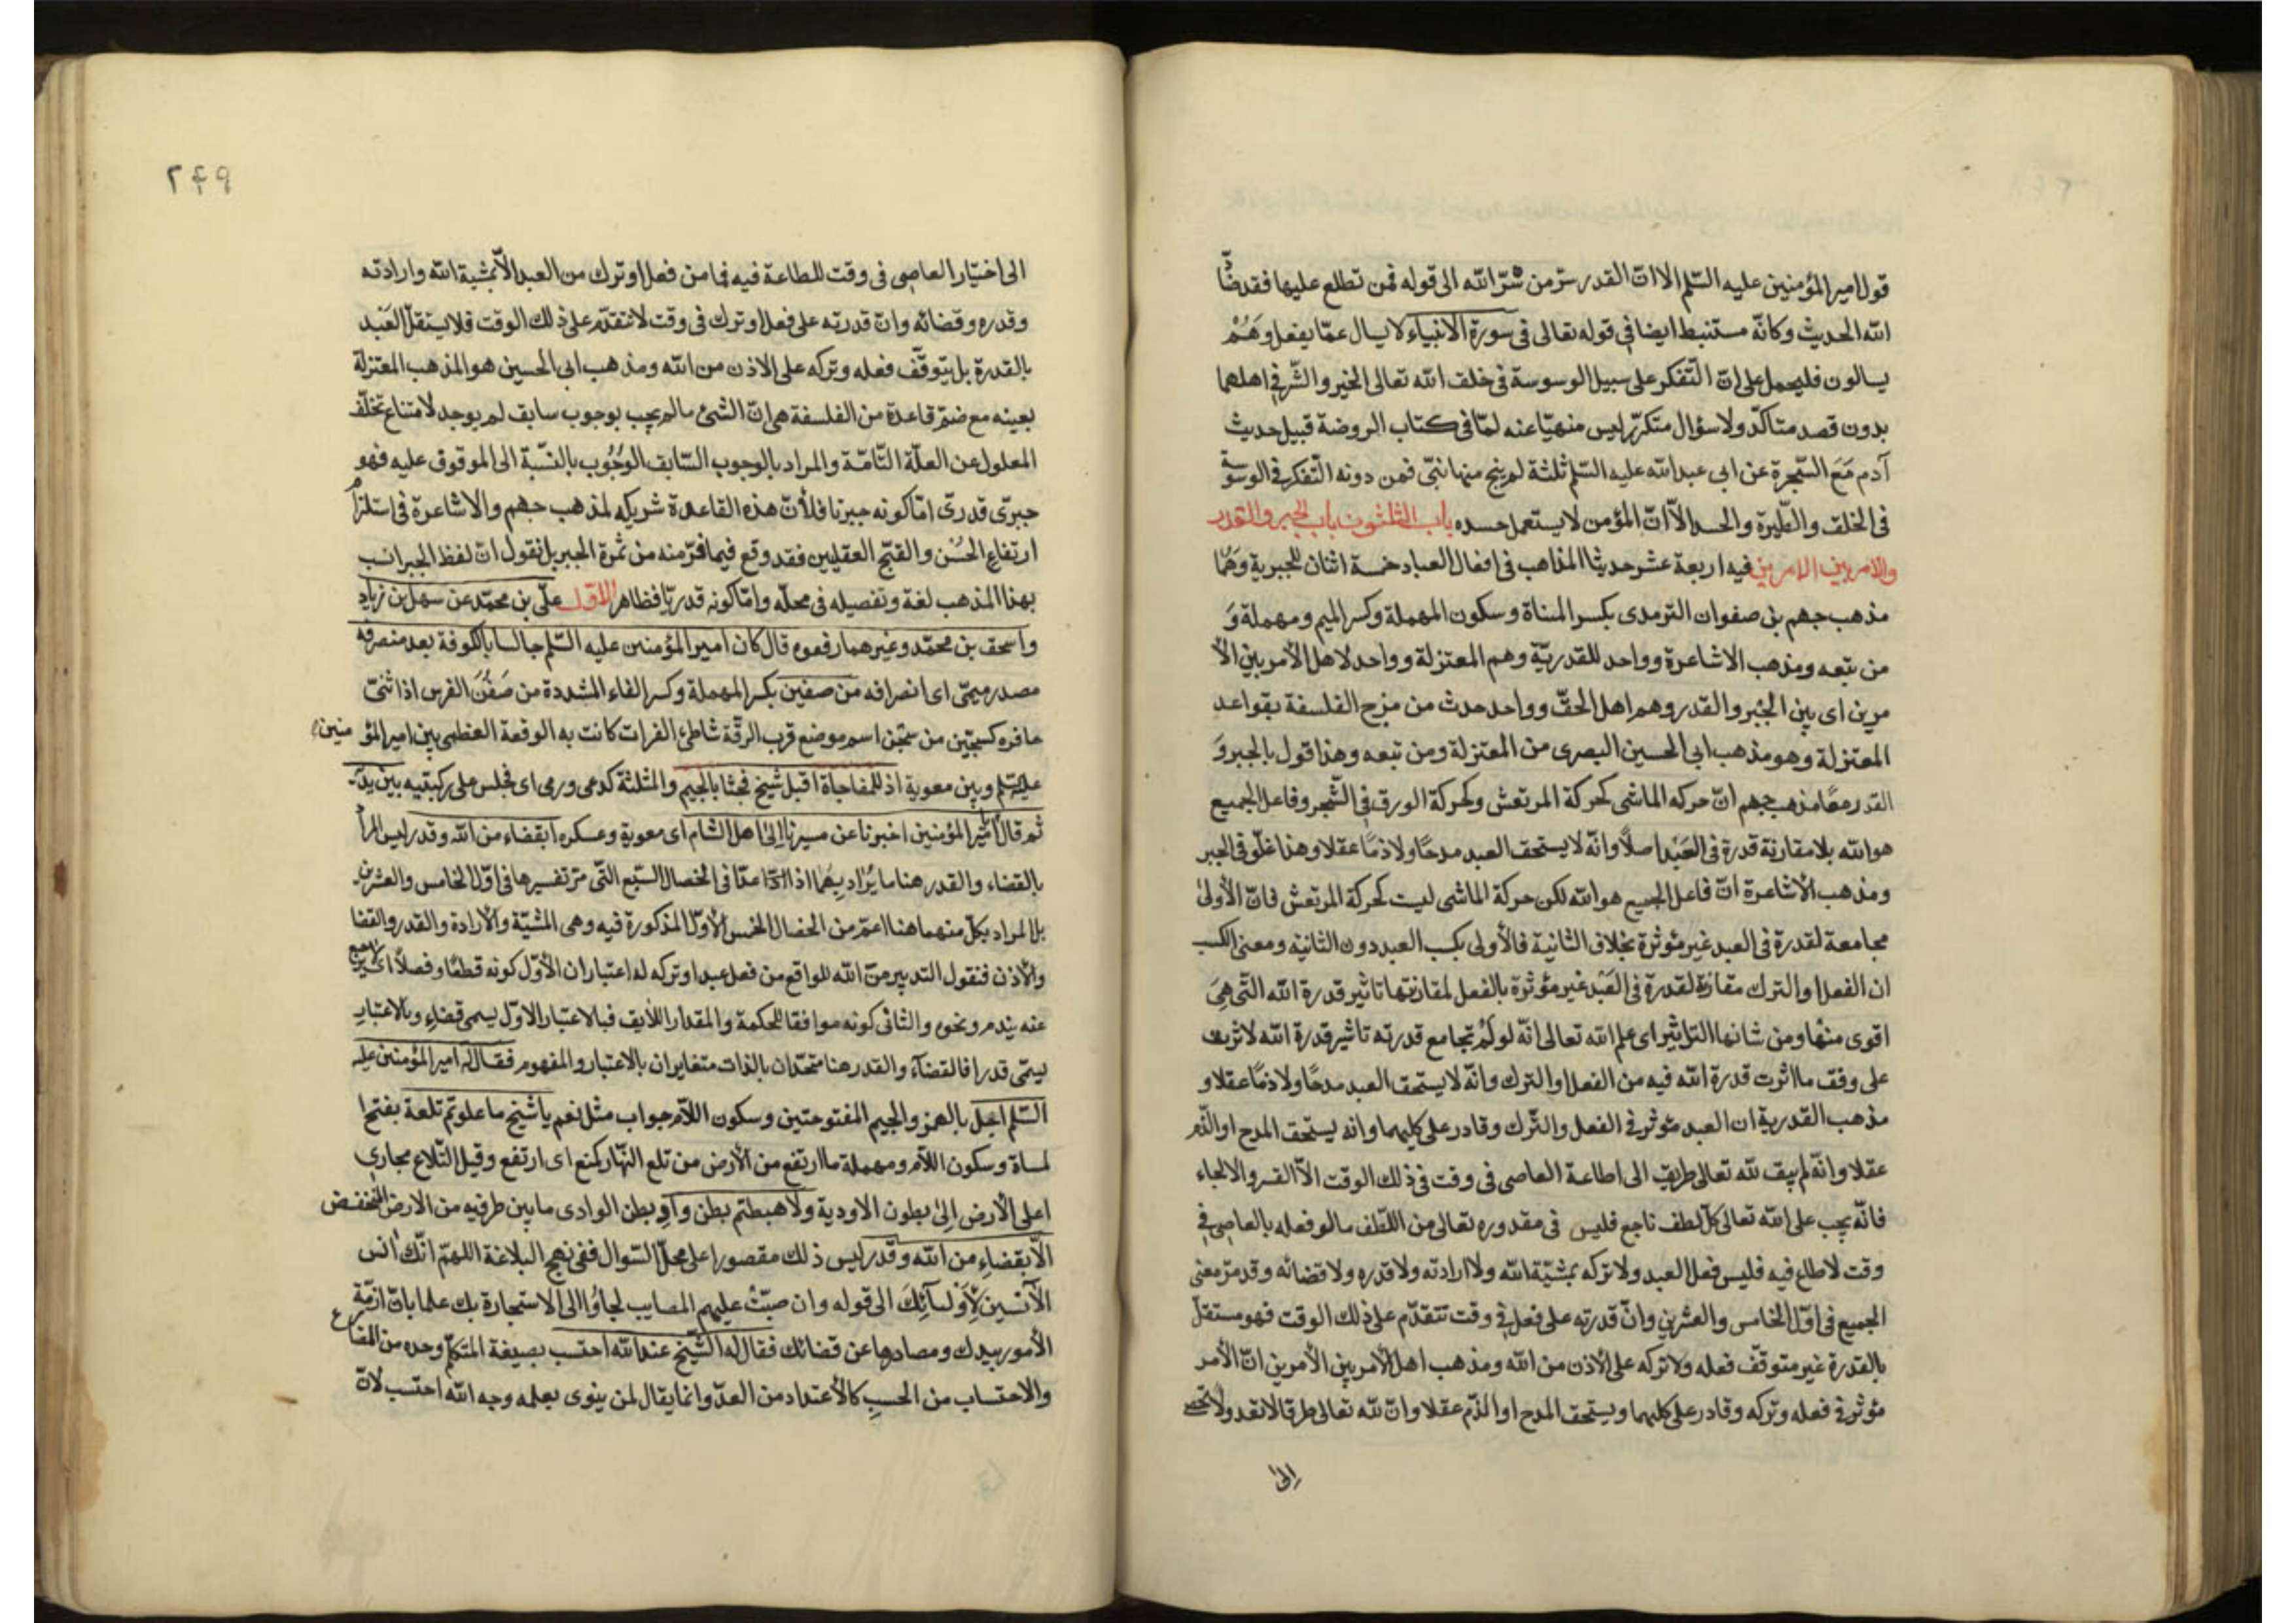 قول امير المؤمنين عليه السّلم الا انّ القدر سرّ من سرّ الله الى قوله فمن تطلع عليها فقد ضادّ
الله الحديث وكانّه مستنبط ايضا فى قوله تعالى فى سورة الانبياء لا يسال عمّا يفعل وَهُمْ
يسالون فليحمل على انّ التّفكر على سبيل الوسوسة فى خلق الله تعالى الخير والشّر فى اهلهما
بدون قصد متاكّد ولا سؤال متكرّر ليس منهيّا عنه لمّا فى كتاب الروضة قبيل حديث
آدم مَعَ الشّجرة عن ابى عبد الله عليه السّلم ثلثة لم ينج منها نبّى فمن دونه التّفكر فى الوسوسة
فى الخلق والطّيرة والحسد الاّ انّ المؤمن لا يستعمل حسده باب الثلثون باب الجبر والقدر
والامر بين الامرين فيه اربعة عشر حديثا المذاهب فى افعال العباد خمسة اثنان للجبرية وَهُما
مذهب جهم بن صفوان الترمدى بكسر المثناة وسكون المهملة وكسر الميم ومهملة وَ
من تبعه ومذهب الاشاعرة وواحد للقدريّة وهم المعتزلة وواحد لاهل الأمر بين الأ
مرين اى بين الجْبر والقدر وهم اهل الحقّ وواحد حدث من مزج الفلسفة بقواعد
المعتزلة وهو مذهب ابى الحسين البصرى من المعتزلة ومن تبعه وهذا قول بالجبر وَ
القدر معًا مذهب جهم انّ حركه الماشى كحركة المرتعش وكحركة الورق فى الشّجر وفاعل الجميع
هو الله بلا مقارنة قدرة فى العَبْد اصلاً وانّه لا يستحق العبد مدحًا ولا ذمًا عقلا وهذا غلّو فى الجبر
ومذهب الأشاعرة انّ فاعل الجميع هو الله لكن حركة الماشى ليست كحركة المرتعش فانّ الأولىٰ
مجامعة لقدرة فى العبد غير مؤثرة بخلاف الثانية فالأولى بكسب العبد دون الثانية ومعنى الكسب
ان الفعل او الترك مقارنة لقدرة فى العَبْد غير مؤثرة بالفعل لمقارنتها تاثير قدرة الله التّى هِىَ
اقوى منها ومن شانها التاثير اى علم الله تعالى انّه لو لَمْ تجامع قدرته تاثير قدرة الله لاثرت
على وفق ما اثرت قدرة الله فيه من الفعل او الترك وانّه لا يستحق العبد مدحًا ولا ذمًا عقلا و
مذهب القدرية ان العبد مؤثر فى الفعل والتّرك وقادر على كليهما وانه يستحق المدح او الذّم
عقلا وانّه لم يبق لله تعالى طريق الى اطاعة العاصى فى وقت فى ذلك الوقت الاّ القسر والالجاء
فانّه يجب على الله تعالى كلّ لطف ناجع فليس فى مقدوره تعالى من اللّطف ما لو فعله بالعاصى فى
وقت لاطاع فيه فليس فعل العبد ولا تركه بمشيّة الله ولا ارادته ولا قدره ولا قضائه وقد مرّ معنى
الجميع فى اوّل الخامس والعشرين وانّ قدرته على فعل فى وقت تتقدّم على ذلك الوقت فهو مستقلّ
بالقدرة غير متوقّف فعله ولا تركه على الأذن من الله ومذهب اهل الأمر بين الأمرين انّ الأمر
مؤثر فى فعله وتركه وقادر على كليهما ويستحق المدح او الذّم عقلا وانّ لله تعالى طرقا لا تعد ولا تحصى
الىٰ
٢٤٩
الى اختيار العاصى فى وقت للطاعة فيه فما من فعل او ترك من العبد الاّ بمشية الله وارادته
وقدره وقضائه وانّ قدرته على فعل او ترك فى وقت لا تتقدّم على ذلك الوقت فلا يستقلّ العَبْد
بالقدرة بل يتوقّف فعله وتركه على الاذن من الله ومذهب ابى الحسين هو المذهب المعتزلة
بعينه مع ضمّ قاعدة من الفلسفة هى انّ الشئ ما لم يجب بوجوب سابق لم يوجد لامتناع تخلّف
المعلول عن العلّة التّامّة والمراد بالوجوب السّابق الوُجُوب بالنّسبة الى الموقوف عليه فهو
جبرىّ قدرىّ امّا كونه جبريّا فلأنّ هذه القاعدة شريكه لمذهب جهم والاشاعرة فى استلزام
ارتفاع الحُسْن والقبّح العقليين فقد وقع فيما فرّ منه من ثمرة الجبر بل نقول انّ لفظ الجبر انسب
بهذا المذهب لغة وتفصيله فى محلّه وامّا كونه قدريّا فظاهر الاوّل علّى بن محمّد عن سهل بن زياد
واسحق بن محمّد وغيرهما رفعوه قال كان امير المؤمنين عليه السّلم جالسا بالكوفة بعد منصرفه
مصدر ميمّى اى انصرافه من صفين بكسر المهملة وكسر الفاء المشددة من صَفَنَ الفرس اذا ثنىّ
حافره كسجّين من سجّن اسم موضع قرب الرقّة شاطئ الفرات كانت به الوقعة العظمى بين امير المؤ منين
عليه السّلم وبين معوية اذ للمفاجاة اقبل شيخ فجثا بالجيم والمثلثة كدعى ورمى اى فجلس على ركبتيه بين يديه
ثم قال يا امير المؤمنين اخبرنا عن مسيرنا إلىٰ اهل الشّام اى معوية وعسكره ابقضاء من الله وقدر ليس المراد
بالقضاء والقدر هنا ما يُراد بِهُما اذا عدّا فى الخصال السّبع التّى مرّ تفسيرها فى اوّل الخامس والعشرين
بل المراد بكلّ منهما هنا اعمّ من الخصال الخمس الأوّل المذكورة فيه وهى المشيّة والأرادة والقدر والقضا
والأذن فنقول التدبير من الله للواقع من فعل عبد او تركه له اعتباران الأوّل كونه قطعًا وفصلاً اى لا يرجع
عنه بندم ونحوه والثانى كونه موافقا للحكمة والمقدار اللّايق فبالاعتبار الاوّل يسمى قضاءً وبالاعتبار
يسمّى قدرا فالقضآء والقدر هنا متحدّان بالذات متغايران بالاعتبار والمفهوم فقال له امير المؤمنين عليه
السّلم اجل بالهمز والجيم المفتوحتين وسكون اللاّم جواب مثل نعم يا شيخ ما علوتم تلعة بفتح ا
لمثناة وسكون اللاّم ومهملة ما ارتفع من الأرض من تلع النّهار كمنع اى ارتفع وقيل التّلاع مجارى
اعلى الأرض إلىٰ بطون الاودية ولا هبطتم بطن وادٍ بطن الوادى ما بين طرفيه من الارض المنخفض
الاّ بقضاءٍ من الله وقدر ليس ذلك مقصورا على محلّ السّوال ففى نهج البلاغة اللهمّ انّك انس
الآنسين لأَوْليآئِكَ الى قوله وان صبّتْ عليهم المصايب لجأوُا الى الاستجارة بك علما بانّ ازمّة
الأمور بيدك ومصادرها عن قضائك فقال له الشّيخ عند الله احتسب بصيغة المتكلّم وحده من المضارع
والاحتساب من الحسب كالأعتداد من العدّ وانما يقال لمن ينوى بعلمه وجه الله احتسب لانّ